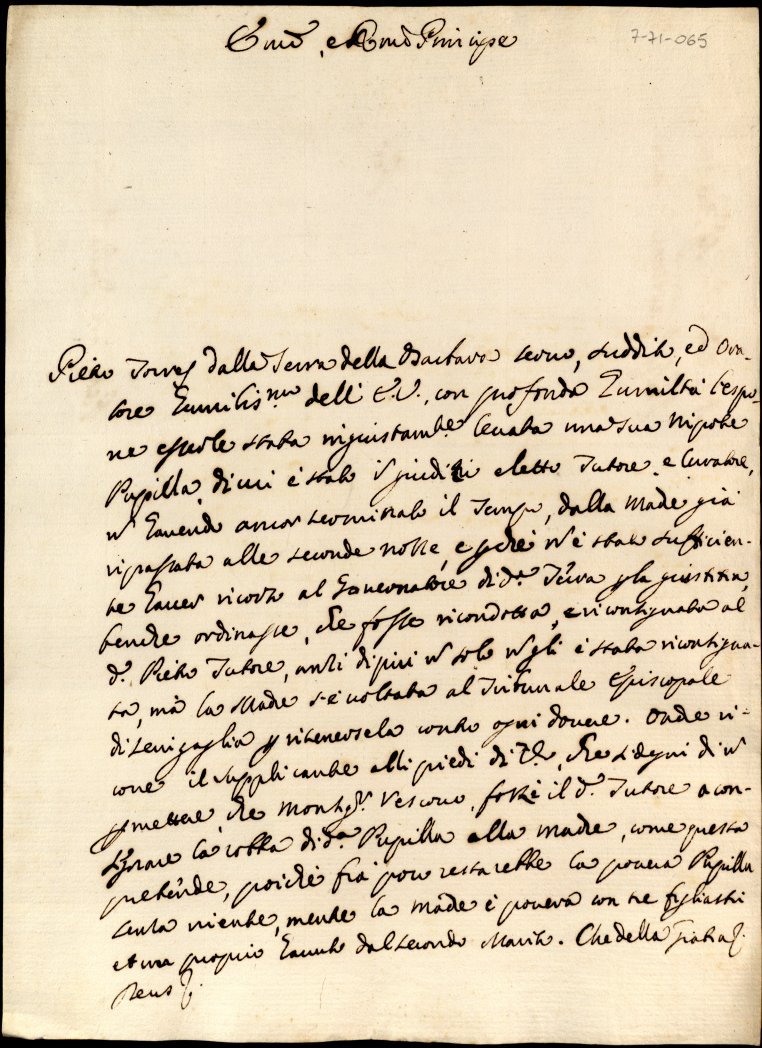 Em̃o, e Rmõ Principe
7-71-065
Pietro Torrej dalla Terra della Barbara servo, suddito, ed Ora-
tore Humilis.mo dell' E.V., con profonda Humiltà l'espo-
ne essergli stata ingiustam.te levata una sua Nipote
Pupilla, di cui è stato eletto Tutore, e Curatore,
n̄ havendo ancor terminato il Tempo, dalla Madre già
ripassata alle seconde nozze, e perchè n̄ è stato sufficien-
te haver ricorso al Governatore di d.a Terra p la giustitia,
benche ordinasse, che fosse ricondotta, e ricontignata al
d.o Pietro Tutore, anzi di più n̄ solo n̄ gli è stata ricontigna-
ta, mà la Madre s'è voltata al Tribunale Episcopale
di Senigaglia p ritenersela contro ogni dovere. Onde ri-
corre il supplicante alli piedi di V.E., che si degni di n̄
pmettere, che Monsig.r Vescovo, forzi il d.o Tutore a con-
signare la robba di d.a Pupilla alla madre, come questa
pretende, poiche frà poco restarebbe la povera Pupilla
senza niente, mentre la madre è povera con tre figliastri
et un proprio havuto dal secondo Marito. Che della Gratia
Deus